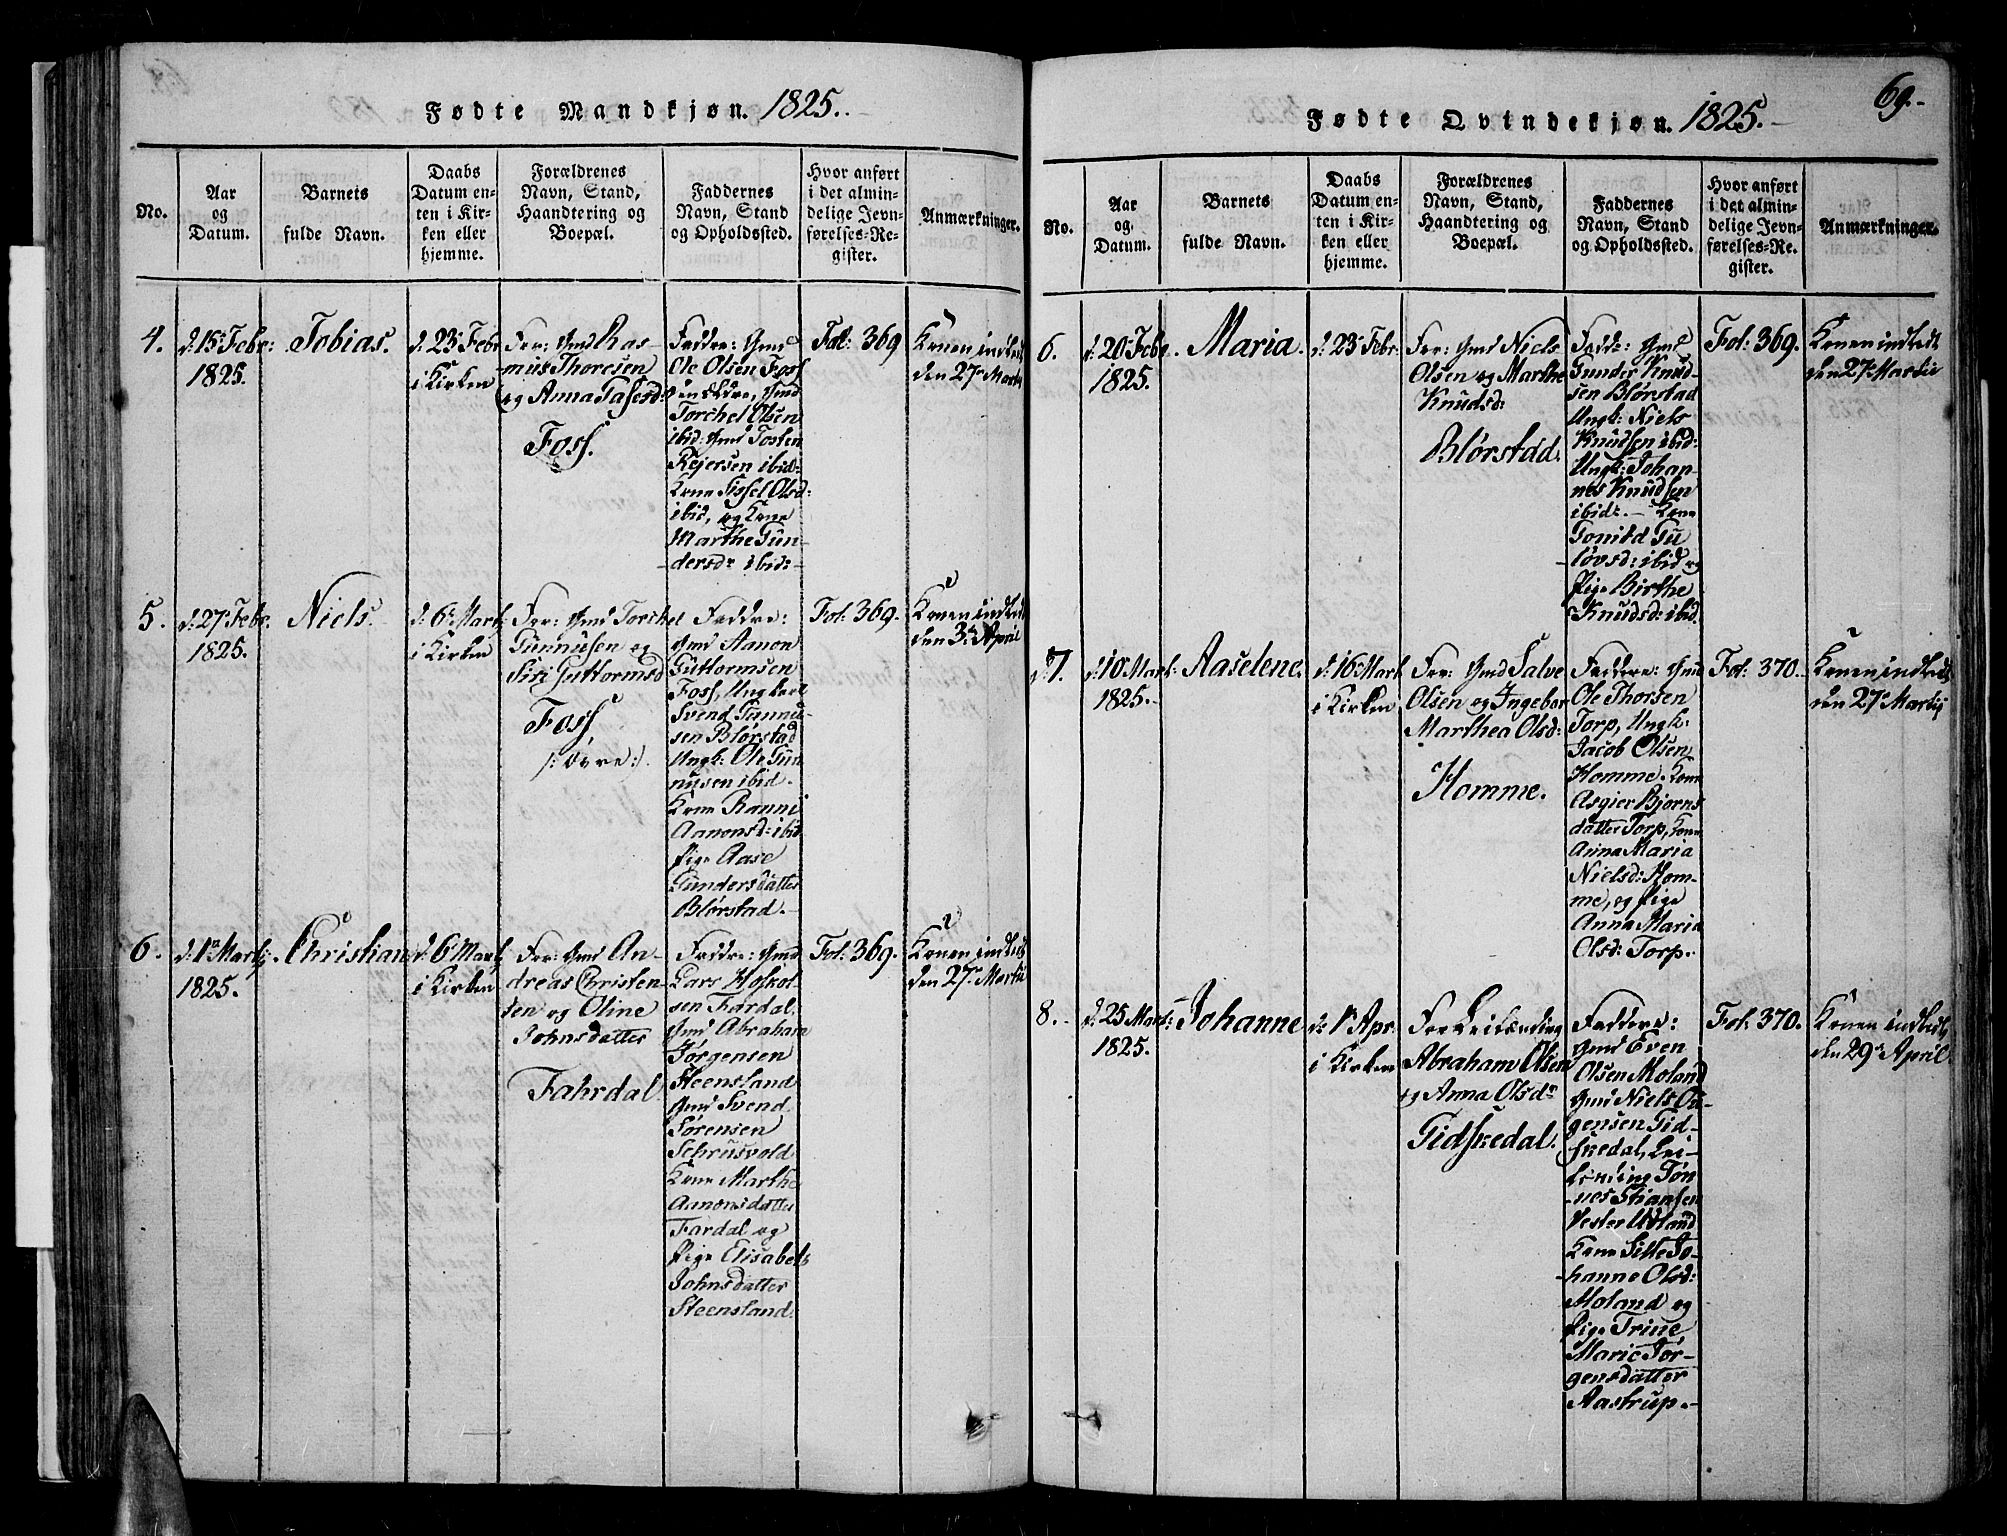 Fødte Mandkjøn. 1825.
No.
Aar
og
Datum.
Barnets
fulde Navn.
Daabs
Datum en-
ten i Kir-
ken eller
hjemme.
Forældrenes
Navn, Stand,
Haandtering og
Boepæl.
Faddernes
Navn, Stand
og Opholdssted.
Hvor anført
i det almin-
delige Jevn-
førelses-Re-
gister.
Anmærkninger.
4.
d: 15 Febr:
1825.
Tobias.
d: 23 Febr
i Kirken
For: Gmd Ras
mus Thoresen
og Anna Tasesd:
Foss.
Faddre: Gmd
Ole Olsen Foss
Gmd
Torchel Olsen
ibid: Gmd Tosten
Rejersen ibid:
Kone Sissel Olsd:
ibid, og Kone
Marthe Gun
dersdr ibid:
Fol: 369
Konen indledt
den 27 Martij
5.
d: 27 Febr.
1825.
Niels.
d: 6 Mart:
i Kirken
For: Gmd Torchel
Gunnusen og
Siri Guttormsd
Foss,
/: Øvre :/.
Faddre:
Gmd Aanon
Guttormsen
Foss, Ungkarl
Svend Gunnu-
sen Blørstad
Ungk: Ole Gun
nusen ibid.
Kone Ranni
Aanonsd: ibid
Pige Aase
Gundersdatter
Blørstad.
Fol: 369.
Konen indledt
den 3 April
6.
d: 1 Martij
1825.
Christian
d: 6 Mart:
i Kirken
For: Gmd An-
dreas Christen-
sen og Oline
Johnsdatter
Fahrdal.
Faddre: Gmd
Lars Hoskol-
sen Fardal.
Gmd Abraham
Jørgensen
Steensland
Gmd Svend
Sørensen
Schrusvold
Kone Marthe
Aanonsdatter
Fardal og
Pige Elisabet
Johnsdatter
Steensland.
Fol: 369.
Konen indledt
den 27 Martii
69.
Fødte Qvindekjøn. 1825.
No.
Aar
og
Datum.
Barnets
fulde Navn.
Daabs
Datum en-
ten i Kir-
ken eller
hjemme.
Forældrenes
Navn, Stand,
Haandtering og
Boepæl.
Faddernes
Navn, Stand
og Opholdssted.
Hvor anført
i det almin-
delige Jevn-
førelses-Re-
gister.
Anmærkninger.
6.
d: 20 Febr
1825.
Maria.
d: 23 Febr:
For: Gmd Niels
Olsen og Marthe
Knudsd:
Blørstad.
Fadd: Gmd
Gunder Knud-
sen Blørstad
Ungk: Niels
Knudsen ibid:
Ungk: Johan-
nes Knudsen
ibid: Kone
Gonild Gu
lovsd: ibid og
Pige Birthe
Knudsd: ibid
Fol: 369.
Konen indledt
den 27 Martii
7.
d: 10 Mart:
1825.
Aaselene.
d: 16 Mart
i Kirken
For: Gmd Salve
Olsen og Ingebor
Marthea Olsd:
Homme.
Faddere: Gmd
Ole Thorsen
Torp, Ungk:
Jacob Olsen
Homme. Kone
Asgier Bjorns
datter Torp, Kone
Anna Maria
Nielsd: Hom-
me, og Pige
Anna Maria
Olsd: Torp.
Fol: 370.
Konen indledt
den 27 Martij
8.
d: 25 Mart:
1825.
Johanne
d: 1 Apr.
i Kirken
For Leilænding
Abraham Olsen
og Anna Olsdr
Gidskedal.
Faddere:
Gmd Even
Olsen Moland
Gmd Niels Ou-
gensen Gid-
skedal, Lei-
lænding Tøn
nes Stiansen
Vester Udland
Kone Sille Jo-
hanne Olsd:
Moland og
Pige Trine
Marie Jør-
gensdatter
Aastrup.
Fol: 370.
Konen indledt
den 29 April